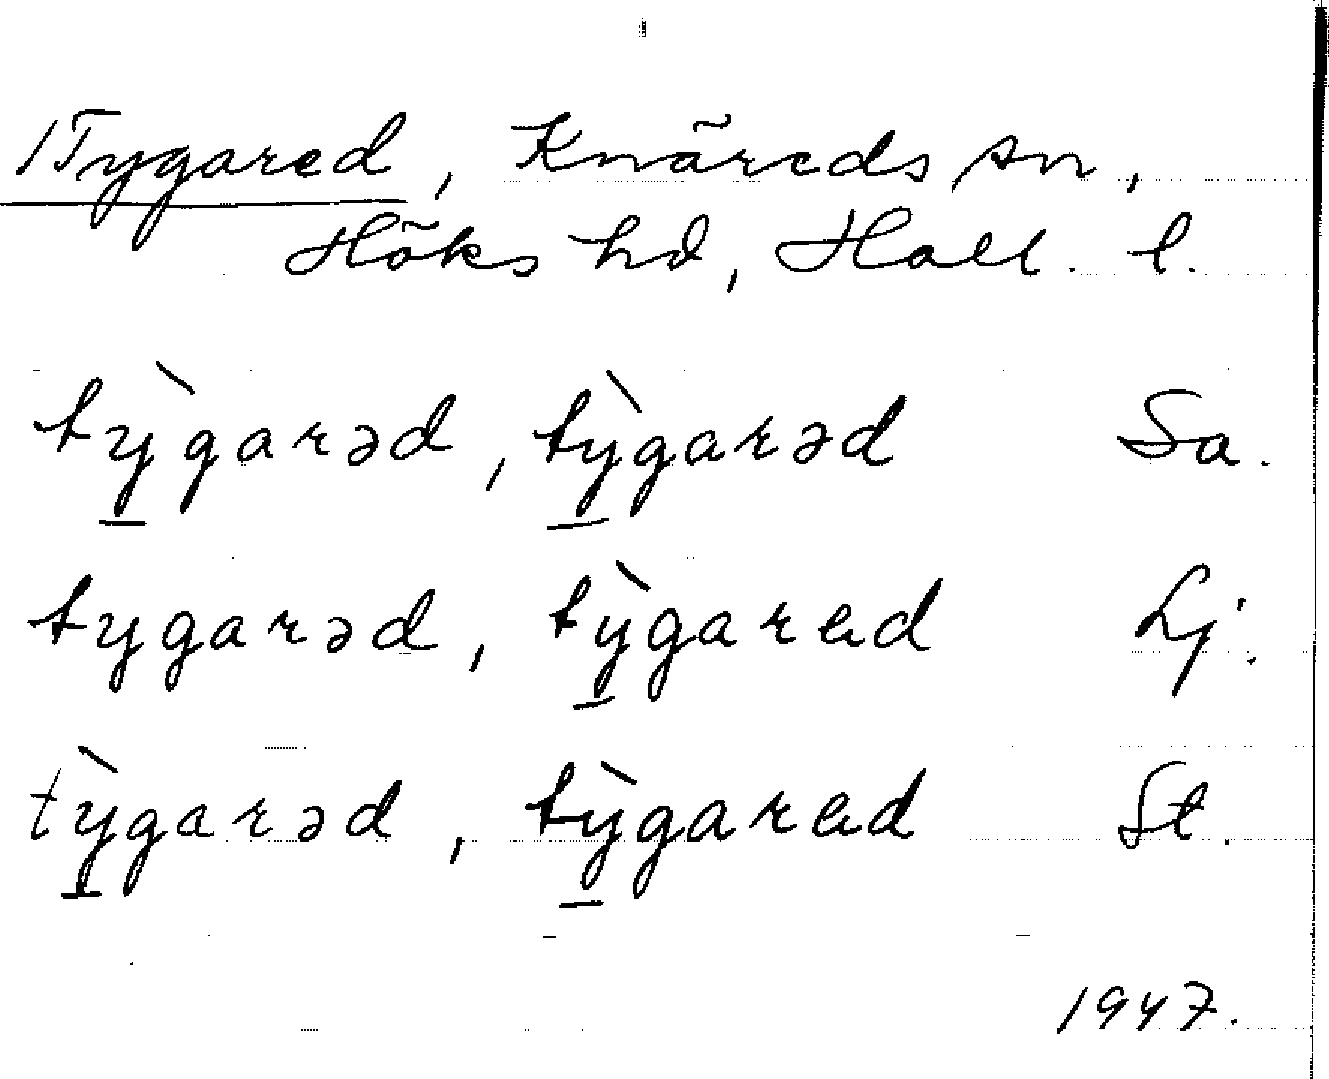 /Tygared, Knäreds sn,
Höks hd, Hall. l.
tỳ̲garəd, tỳ̲garəd Sa.
tygarəd, tỳ̲garad Lj.
tỳ̲garəd, tỳ̲garad St.
1947.